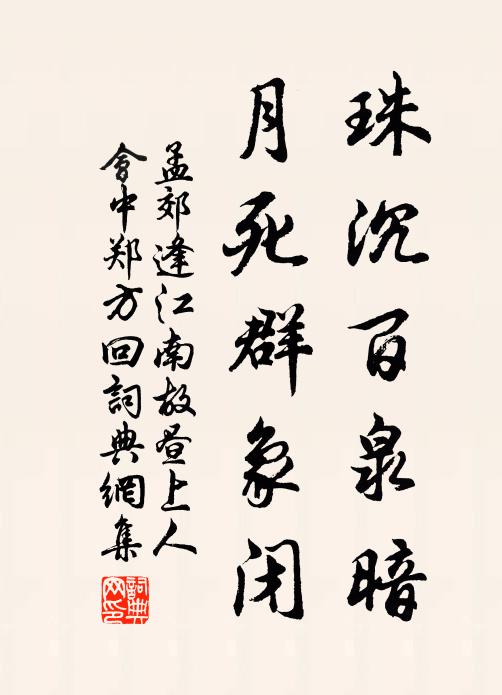 珠沉百泉暗
月死群象闭
孟郊逢江南故昼上人
會中郑方回詞典網集
詞典
网印